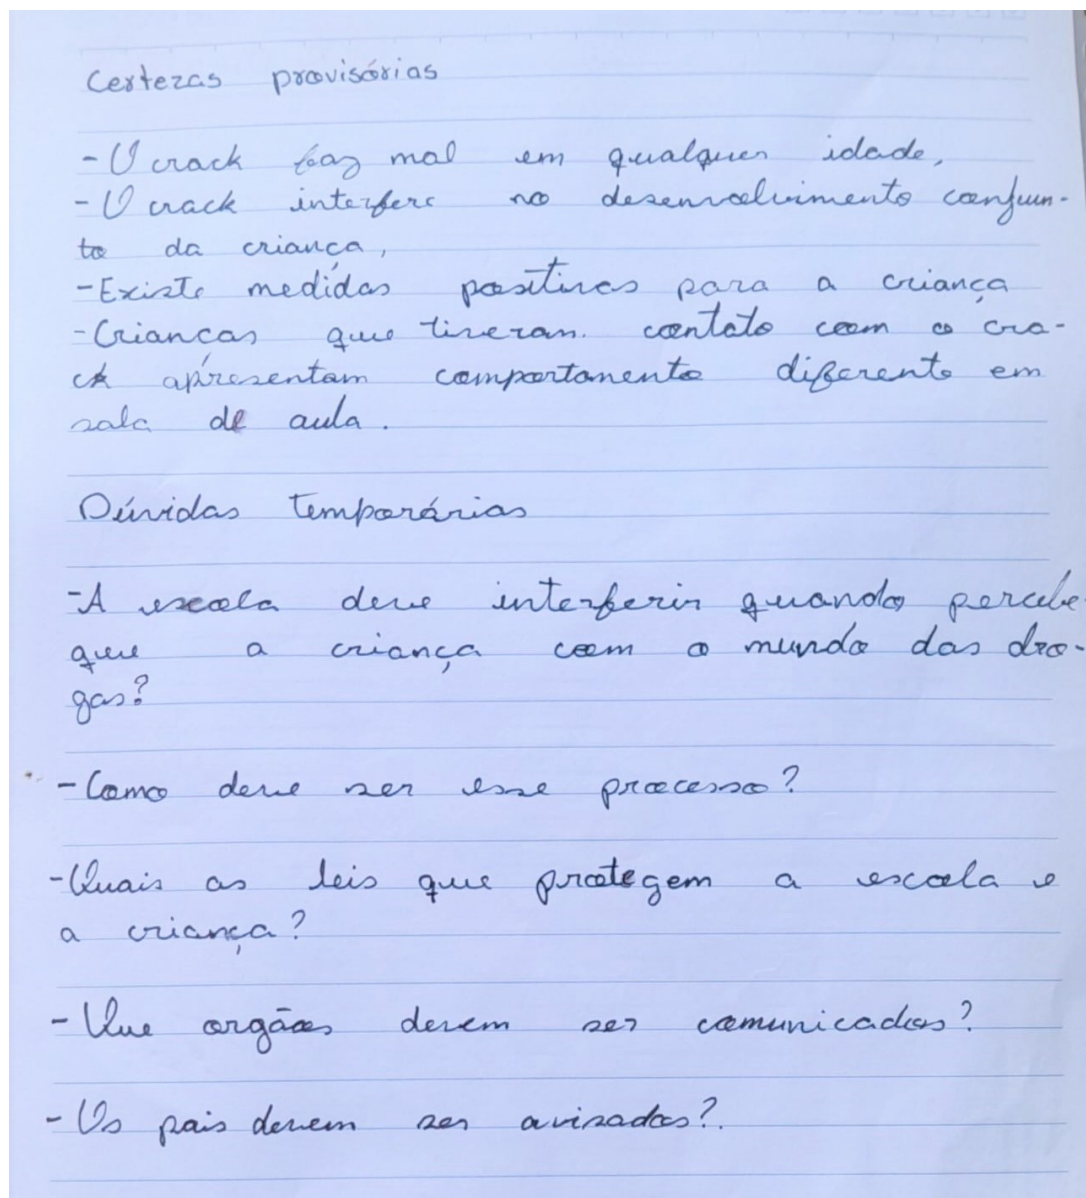 Certezas provisórias
- O crack faz mal em qualquer idade,
- O crack interfere no desenvolvimento conjun-
to da criança,
- Existe medidas positivas para a criança
- Criancas que tiveram. contato com o cra-
ck apresentam comportamento diferente em
sala de aula.
Dúvidas temporárias
- A escola deve interferir quando percebe
que a criança com o mundo das dro-
gas?
- Como deve ser esse processo?
- Quais as leis que protegem a escola e
a criança?
- Que orgãos devem ser comunicados?
- Os pais devem ser avisados?.